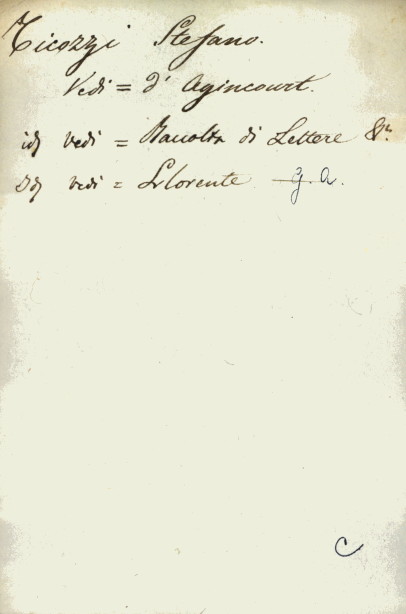 Ticozzi Stefano.
Vedi = d' Agincourt.
id vedi = Raccolta di Lettere &c.
id vedi = Llorente — G. A.
C